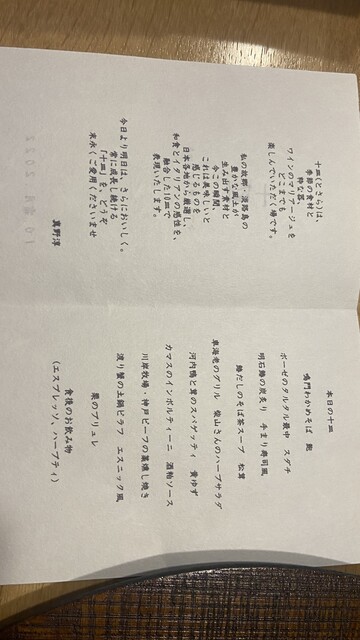 十皿(とさら)は、
季節の食材と
粋な器、
ワインのマリアージュを
どこまでも
楽しんでいただく場です。
私の故郷・淡路島の
豊かな風土が
生み出す素材と
今この瞬間、
これは美味しいと
感じるものを
日本各地から厳選し、
和食とイタリアンの感性を
融合した10皿で
表現いたします。
今日より明日は、さらにおいしく。
常に成長し続ける
「十皿」を、どうぞ
末永くご愛用くださいませ
真野淳
本日の十皿
鳴門わかめそば 鮑
ポーゼのタルタル最中 スダチ
明石鯛の炭炙り 手まり寿司風
鱧だしのそば茶スープ 松茸
車海老のグリル 柴山さんのハーブサラダ
河内鴨と茸のスパゲッティ 黄ゆず
カマスのインボルティーニ 酒粕ソース
川岸牧場・神戸ビーフの藁燻し焼き
渡り蟹の土鍋ピラフ エスニック風
栗のブリュレ
食後のお飲み物
(エスプレッソ、ハーブティ)